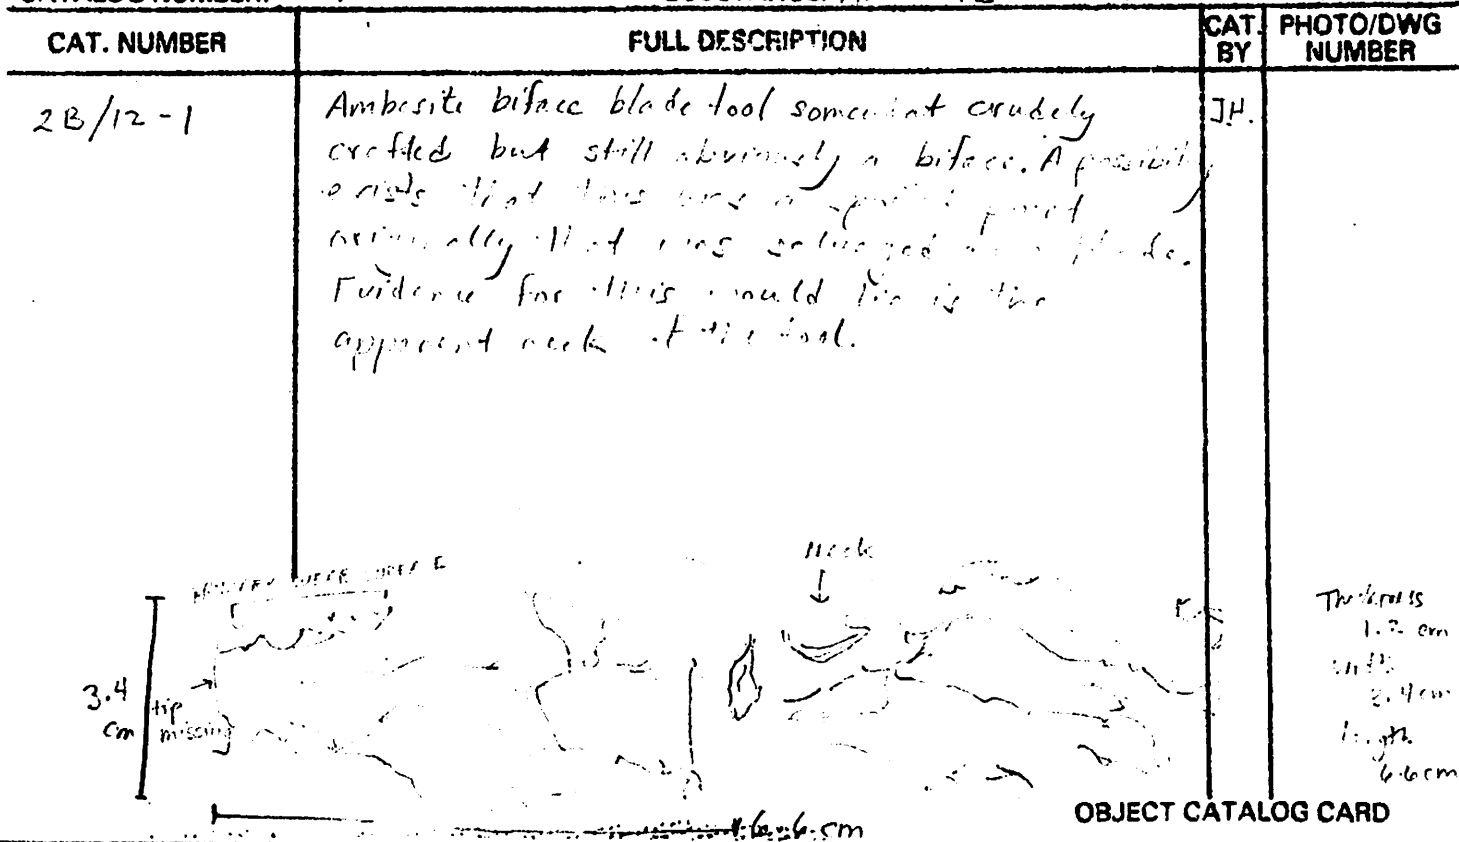 CAT. NUMBER
FULL DESCRIPTION
CAT. BY
PHOTO/DWG NUMBER
2B/12-1
Ambesite biface blade tool somewhat crudely
crafted but still obviously a biface. A possibility
exists that this was a point
originally that was salvaged as a blade.
Evidence for this would be in the
apparent neck of the tool.
JH.
Neck
3.4
cm
tip
missing
6.6 cm
Thickness
cm
width
3.4 cm
length
6.6 cm
OBJECT CATALOG CARD